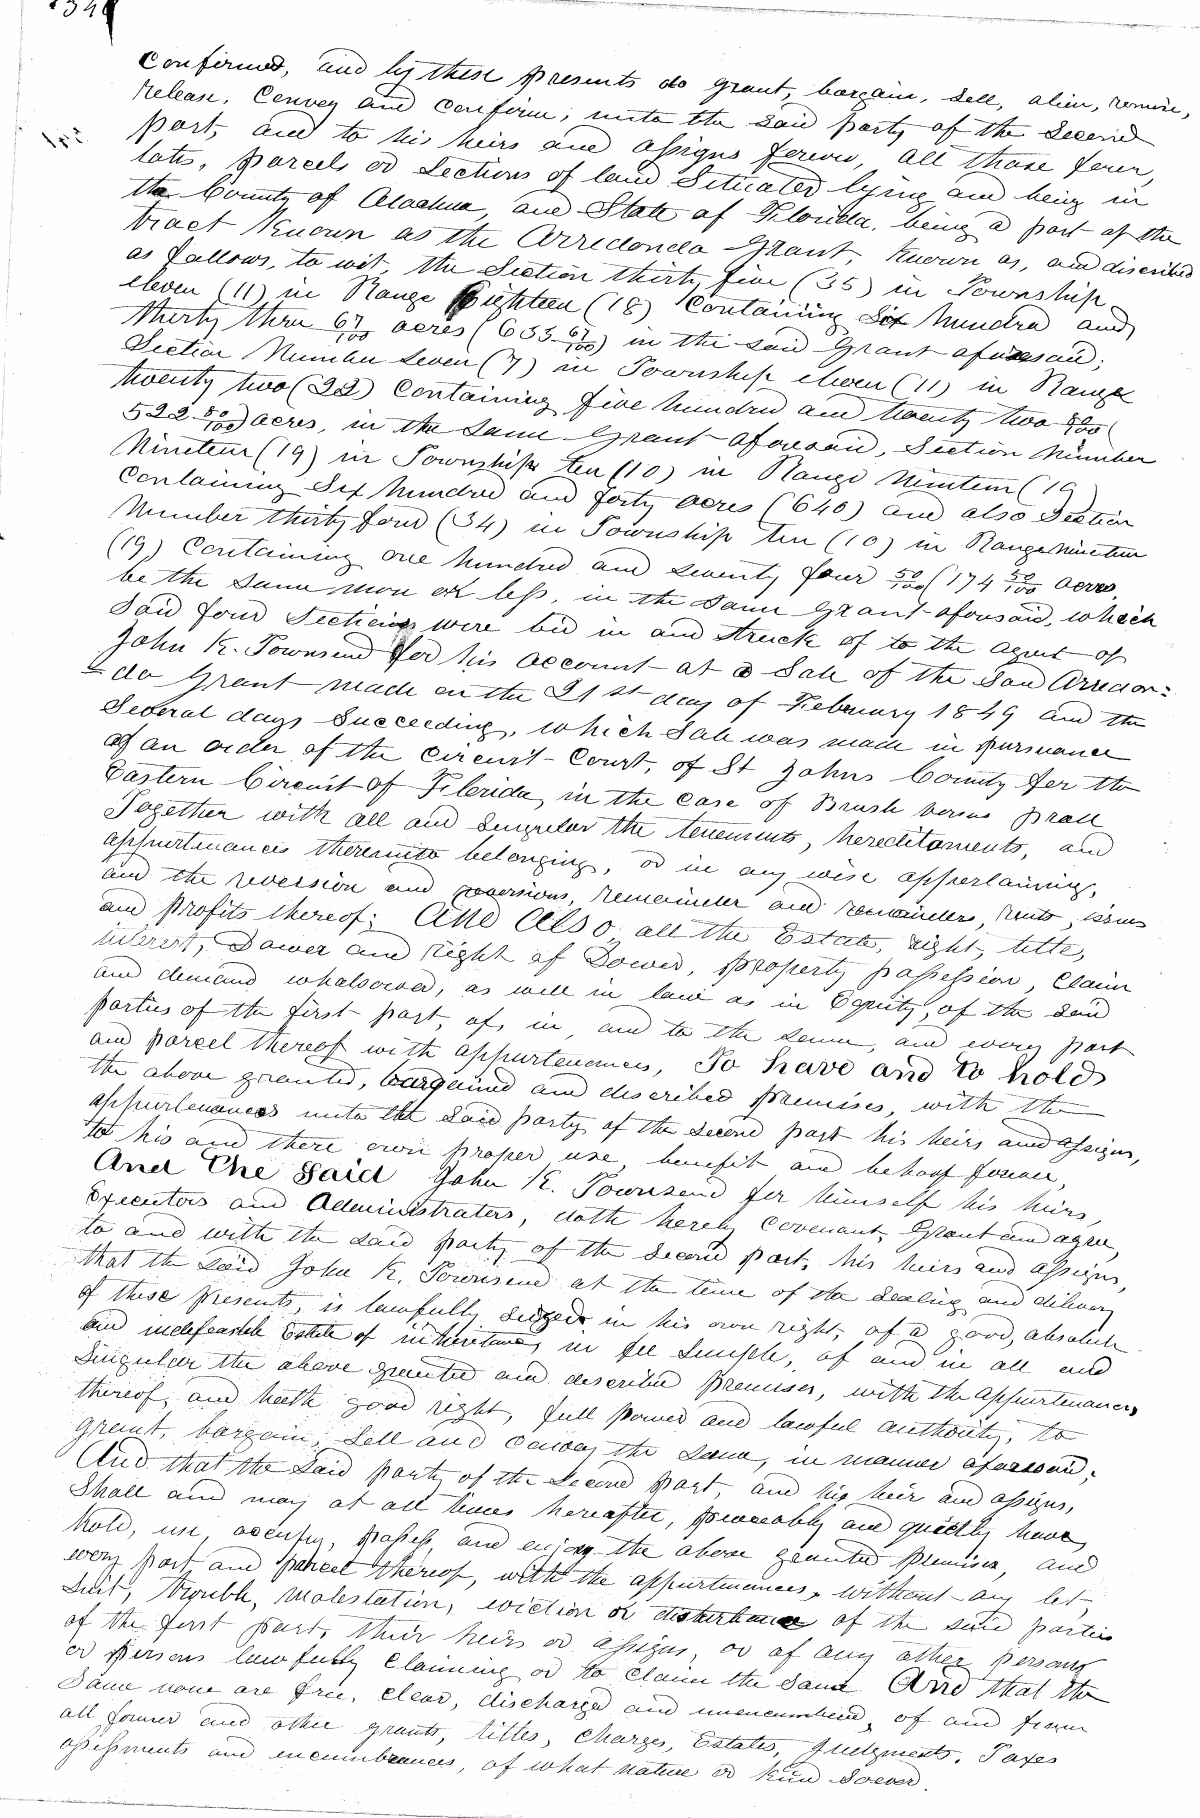 confirmed, and by these presents do grant, bargain, sell, alien, remise,
release, Convey and confirm, unto the said party of the second
part, and to his heirs and assigns forever, all those four,
lots, parcels or Sections of land Situated lying and being in
the County of Alachua, and State of Florida, being a part of the
tract Known as the Arredondo Grant, Known as, and discribed
as follows, to wit, the Section thirty five (35) in Township
eleven (11) in Range Eighteen (18) Containing Six hundred and
thirty three 67/100 acres (633 67/100) in the said Grant aforesaid;
Section Number seven (7) in Township eleven (11) in Range
twenty two (22) Containing five hundred and twenty two 50/100 (
522 50/100) acres, in the same Grant aforesaid, Section Number
Nineteen (19) in Township ten (10) in Range Nineteen (19)
Containing Six hundred and forty acres (640) and also Section
Number thirty four (34) in Township ten (10) in Range Nineteen
(19) Containing one hundred and seventy four 50/100 (174 50/100 acres,
be the same more or less, in the same Grant aforesaid, which
said four Sections were bid in and struck of to the agent of
John K. Townsend for his account at a Sale of the said Arredon=
=do Grant made on the 21st day of February 1849 and the
several days Succeeding, which Sale was made in pursuance
of an order of the Circuit Court, of St Johns County for the
Eastern Circuit of Florida, in the case of Brush versus Prall
Together with all and singular the tenements, hereditaments, and
appurtenances thereunto belonging, or in any wise appertaining,
and the reversion and reversions, remainder and remainders, rents, issues
and profits thereof; And Also, all the Estate, right, title,
interest, Dower and right of Dower, property possession, claim
and demand whatsoever, as well in law as in Equity, of the said
parties of the first part, of, in, and to the same, and every part
and parcel thereof with appurtenances, To have and to hold
the above granted, bargained and described premises, with the
appurtenances unto the said party of the second part his heirs and assigns,
to his and there own proper use, benefit and behoof forever,
And The Said John K. Townsend for himself his heirs,
Executors and Administrators, doth hereby Covenant, Grant and agree,
to and with the said party of the second part, his heirs and assigns,
that the said John K. Townsend at the time of the sealing and delivery
of these presents, is lawfully seized in his own right, of a good, absolute
and indefeasible Estate of inheritance, in fee simple, of and in all and
singular the above granted and described premises, with the appurtenances
thereof, and hath good right, full power and lawful authority, to
grant, bargain, sell and convey the same, in manner aforesaid;
And that the said party of the second part, and his heir and assigns,
Shall and may at all times hereafter, peaceably and quietly have
hold, use, occupy, possess, and enjoy the above granted premises, and
every part and parcel thereof, with the appurtenances, without any let,
suit, trouble, molestation, eviction or disturbance of the said parties
of the first part, their heirs or assigns, or of any other person
or persons lawfully claiming or to claim the same And that the
same none are free, clear, discharged and unencumbered, of and from
all former and other grants, titles, charges, Estates, judgments, Taxes
assessments and encumbrances, of what nature or kind soever.